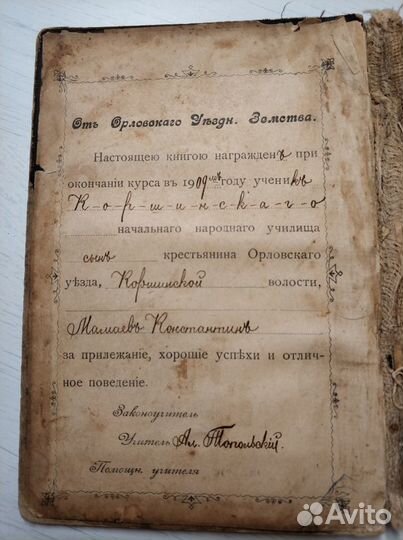 Отъ Орловскаго Уѣздн. Земства.
Настоящею книгою награжденъ при
окончаніи курса въ 1909мъ году ученикъ
К-о-р-ш-и-н-с-к-а-г-о
начальнаго народнаго училища
сынъ крестьянина Орловскаго
уѣзда, Коршинской волости,
Мамаевъ Константинъ
за прилежаніе, хорошіе успѣхи и отлич-
ное поведеніе.
Законоучитель
Учитель Ал. Топольскій.
Помощн. учителя
Avito